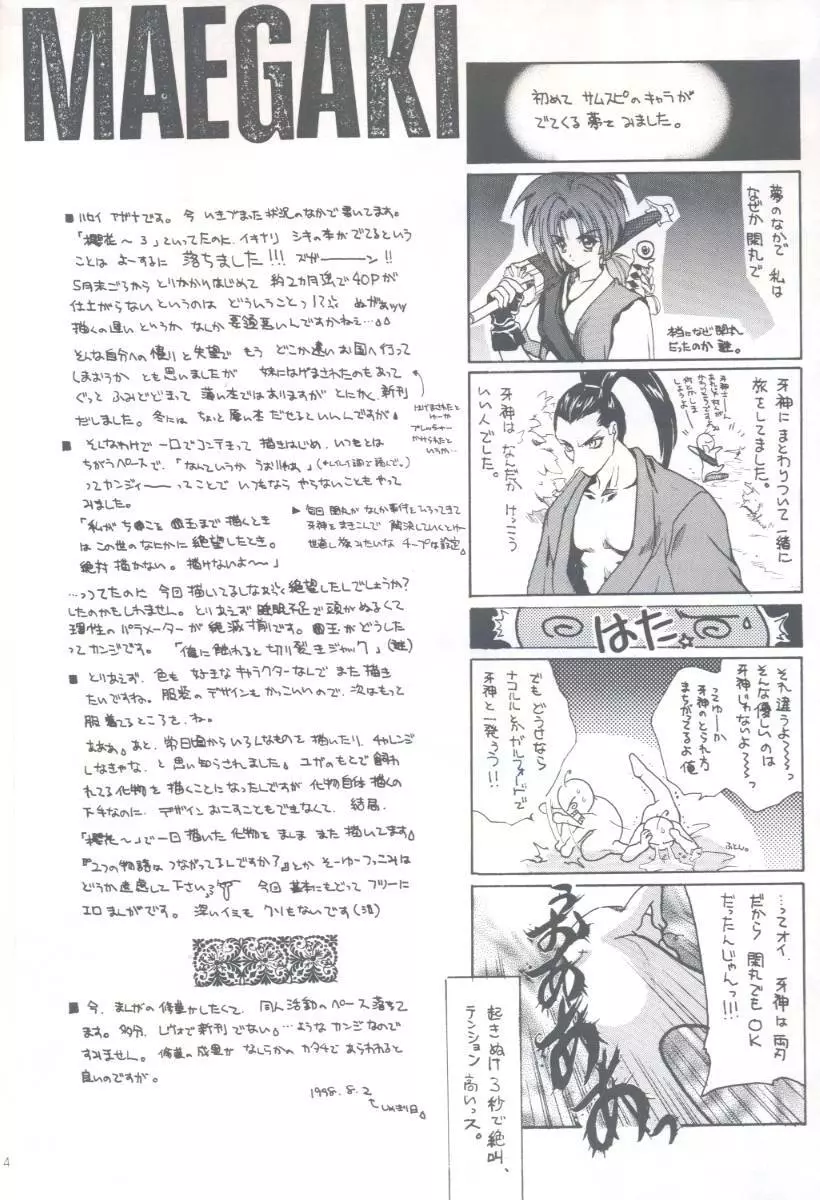 MAEGAKI
■ ハセイ アガナです。今 いきづまった状況のなかで書いてます。
「櫻花〜3」といってたのに、イキナリ シキの本がでてるという
ことは よーするに 落ちました!!! ズガーーーン!!
5月末ごろから とりかかりはじめて 約2カ月強で 40Pが
仕上がらないというのは どういうことっ!? ぬがぁッッ
描くの遅い というか なんか 要領悪いんですかねぇ…
そんな自分への憤りと失望で もう どこか遠いお国へ行って
しまおうか とも思いましたが 妹にはげまされたのもあって
ぐっと ふみとどまって 薄い本ではありますが とにかく、新刊
だしました。冬には ちょっと厚い本 だせるといいんですが。
はげまされたと
ゆーか
プレッシャー
かけられたと
いうか…
■ そんなわけで 一日でコンテきって 描きはじめ、いつもとは
ちがうペースで、「なんていうか うおりゃぁ」
ってカンジィーーーってことで いつもなら やらないこともやって
みました。
▶ 毎回 閑丸が なんか事件をひろってきて
牙神をまきこんで 解決していくとゆー
世直し旅みたいな チープな設定。
「私が ち●こと ●玉まで 描くとき
は この世のなにかに 絶望したとき。
絶対 描かない。描けないよ〜〜」
…ってたのに 今回 描いてるしなぁ。絶望したんでしょうか?
したのかもしれません。とりあえず 睡眠不足で頭がぬるくて
理性の パラメーターが 絶滅寸前です。●玉が どうした
ってカンジです。「俺に触れると 切り裂きジャック」(謎)
■ とりあえず、色も 好きなキャラクターなんで また 描き
たいですね。服装の デザインも かっこいいので、次はもって
服着てるところを、ね。
あああ。あと、常日頃から いろんなものを 描いたり、チャレンジ
しなきゃな、と 思い知らされました。ユガのもとで 飼わ
れてる化物を 描くことになったんですが 化物自体 描くの
下手なのに、デザイン おこすことも できなくて、結局、
「櫻花〜」で一日描いた 化物を まんま また 描いてます。
『2つの物語は つながってるんですか?』とか そーゆーつっこみは
どうか 遠慮して下さい。今回 基本にもどって フツーに
エロまんがです。深いイミも クソもないです(泣)
■ 今、まんがの 修業がしたくて、同人活動のペース 落ちて
ます。多分、レヴォで新刊 でない。…ような カンジなので
すみません。修業の成果が なんらかの カタチで あらわれると
良いのですが。
1998.8.2
しめきり日。
初めて サムスピの キャラが
でてくる 夢を みました。
夢のなかで 私は
なぜか 閑丸で
本当になぜ 閑丸
だったのか 謎。
牙神に まとわりついて 一緒に
旅をしてました。
牙神は なんだか けっこう
いい人でした。
はた☆
それ違うよ〜〜っ
そんな優しいのは
牙神じゃないよ〜〜っ
ってゆーか
牙神のとられ方
まちがってるよ 俺
でも どうせなら
ナコルルとか ガルフォードで
牙神と 一発ぅ!!
ふとん。
…ってオイ、牙神は 両刃
だから 閑丸でも OK
だったんじゃんっ!!!
うおあああああぁっ
起きぬけ 3秒で 絶叫、
テンション 高いっス。
4